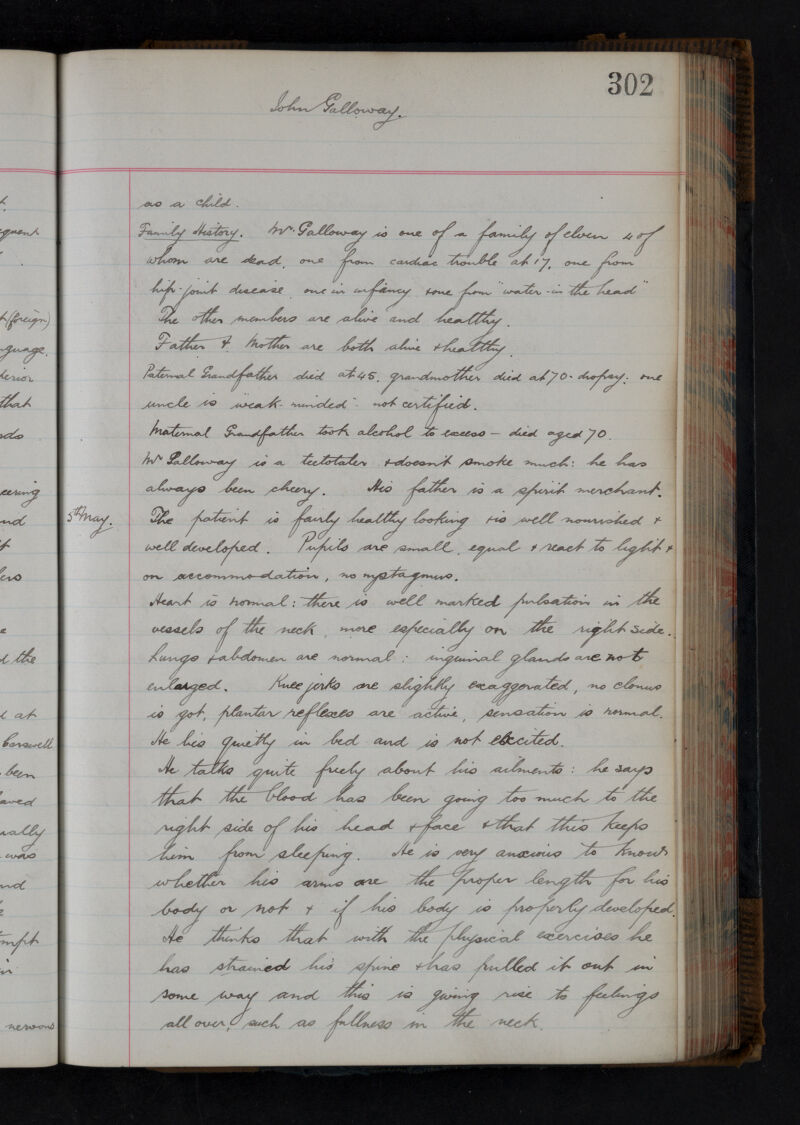 302
John Galloway.
as a child.
Family History. Mr Galloway is one of a family of eleven 4 of
whom are dead, one from cardiac trouble at 17, one from
hip-joint disease, one in infancy & one from "water-in the head"
The other members are alive and healthy.
Father & Mother are both alive & healthy.
Paternal Grandfather died at 45, grandmother died at 70 - dropsy: one
uncle is weak-minded - not certified.
Maternal Grandfather took alcohol to excess – died aged 70.
Mr Galloway is a teetotaler & doesn't smoke much: he has
always been cheery. His father is a spirit merchant.
5th May. The patient is fairly healthy looking & is well nourished &
well developed. Pupils are small, equal & react to light &
on accommodation, no nystagmus.
Heart is normal: there is well marked pulsation in the
vessels of the neck, more especially on the right side.
Lungs & abdomen are normal: inguinal glands are not
enlarged. Knee jerks are slightly exaggerated, no clonus
is got, plantar reflexes are active, sensation is normal.
He lies quietly in bed and is not excited.
He talks quite freely about his ailments: he says
that the blood has been going too much to the
right side of his head & face & that this keeps
him from sleeping. He is very anxious to know
whether his arms are the proper length for his
body or not & if his body is properly developed.
He thinks that with the physical exercises he
has strained his spine & has pulled it out in
some way and this is giving rise to feelings
all over, such as fullness in the neck.
(foreign)
that
the
at
been
was
nervous